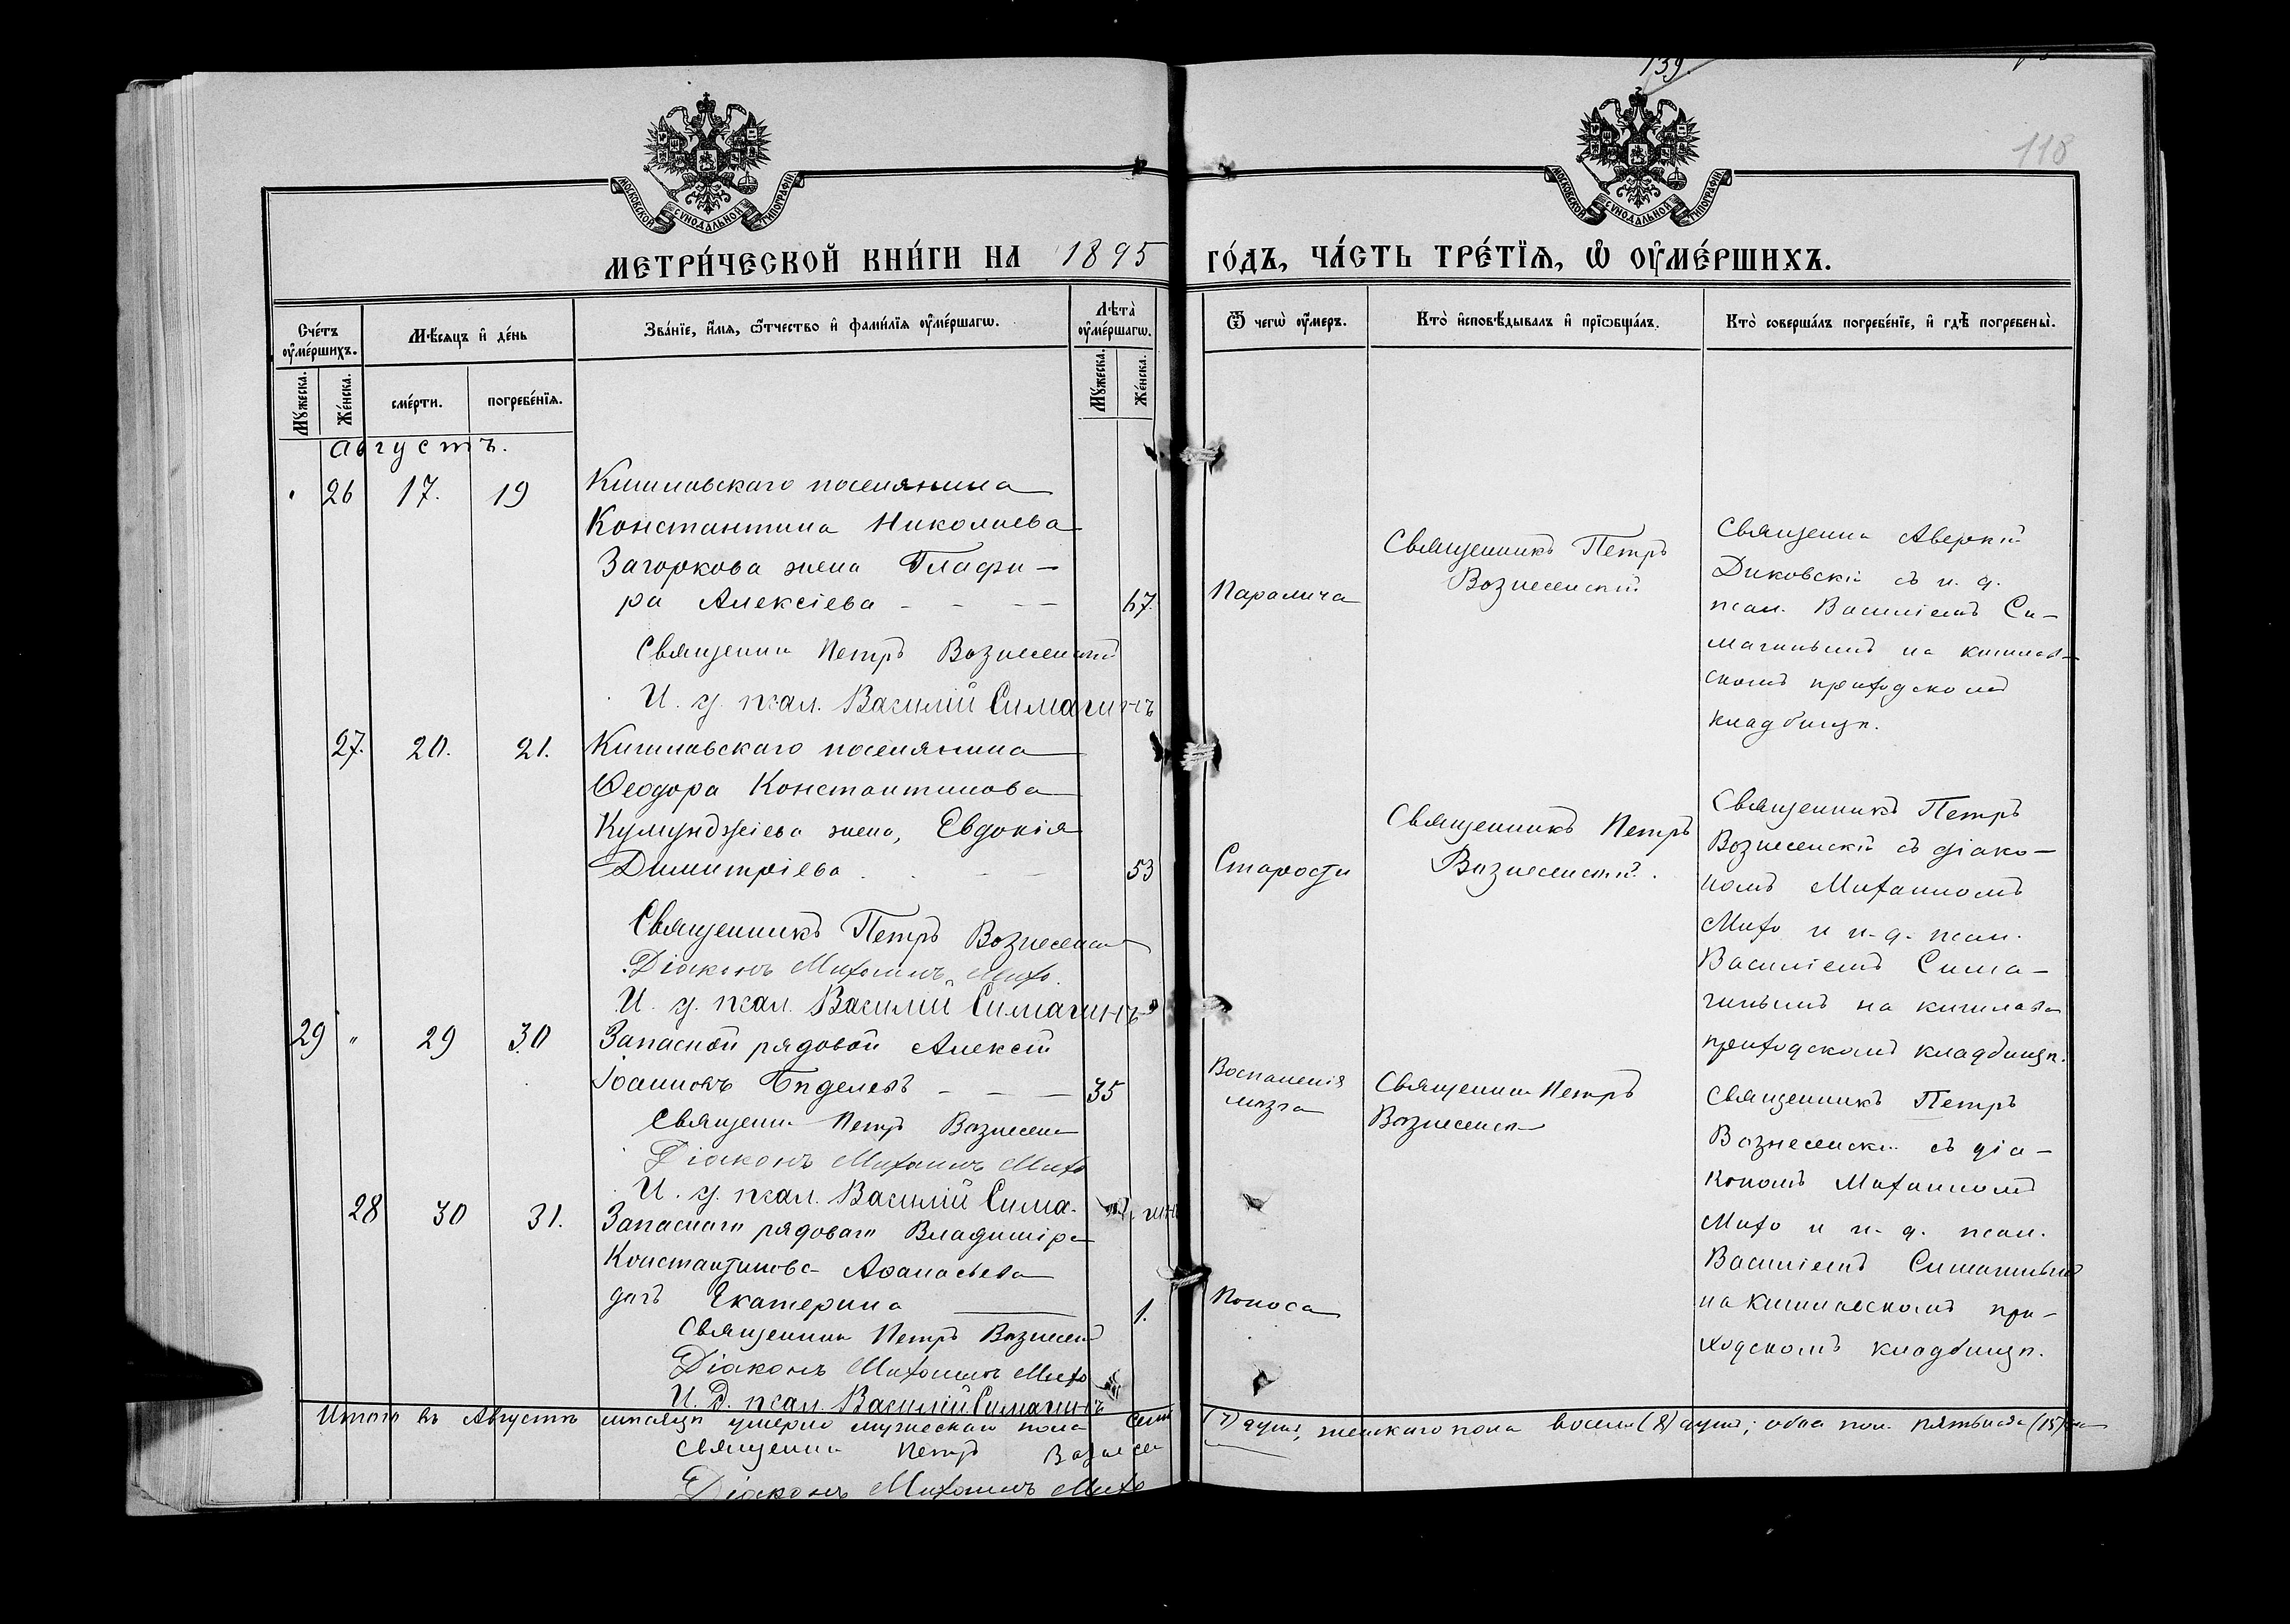 139.
118
МОСКОВСКОЙ СѴНОДАЛЬНОЙ ТИПОГРАФІИ
МОСКОВСКОЙ СѴНОДАЛЬНОЙ ТИПОГРАФІИ
МЕТРИ́ЧЕСКОЙ КНИ́ГИ НА 1895 ГО́ДЪ, ЧА́СТЬ ТРЕ́ТІѦ, Ѡ҆ ОУ҆МЕ́РШИХЪ.
Сче́тъ оу҆ме́ршихъ.
Мѣ́сѧцъ и҆ де́нь
Зва́нїе, и҆́мѧ, ѻ҆́тчество и҆ фами́лїѧ оу҆ме́ршагѡ.
Лѣта̀ оу҆ме́ршагѡ.
Ѿ чегѡ̀ оу҆́меръ.
Кто̀ и҆сповѣ́дывалъ и҆ прїѡбща́лъ.
Кто̀ соверша́лъ погребе́нїе, и҆ гдѣ̀ погребены̀.
Мꙋ́жеска.
Же́нска.
сме́рти.
погребе́нїѧ.
Мꙋ́жеска.
Же́нска.
Августъ.
26 17. 19 Кишлавскаго поселянина
Константина Николаева
Загоркова жена Глафи-
ра Алексіева - - - 67.
Священни Петръ Вознесенскій
И. д. псал. Василій Симагинъ
Паралича
Священникъ Петръ
Вознесенскій
Священни Аверкій
Диковскій съ и. д.
псал. Василіемъ Си-
магинымъ на кишлав-
скомъ приходскомъ
кладбищѣ.
27. 20. 21. Кишлавскаго поселянина
Ѳеодора Константинова
Кумунджіева жена, Евдокія
Димитріева - - 53
Священникъ Петръ Вознесенс
Діаконъ Михаилъ Михо.
И. д. псал. Василій Симагинъ
Старости
Священникъ Петръ
Вознесенскій.
Священникъ Петръ
Вознесенскій съ діако-
номъ Михаиломъ
Михо и и. д. псал.
Василіемъ Сима-
гинымъ на кишлавс
приходскомъ кладбищѣ.
29 " 29 30 Запасной рядовой Алексій
Іоанновъ - - - 35
Священни Петръ Вознесен
Діаконъ Михаилъ Михо
И. д. псал. Василій Сима-
гинъ
Воспаленія
мозга
Священни Петръ
Вознесенск
Священникъ Петръ
Вознесенскі съ діа-
кономъ Михаиломъ
Михо и и. д. псал.
Василіемъ Симагинымъ
на кишлавскомъ при-
ходскомъ кладбищѣ.
28 30 31. Запаснаго рядоваго Владиміра
Константинова Аѳанасьева
дочь Екатерина 1.
Священни Петръ Вознесен
Діаконъ Михаилъ Михо
И. Д. псал. Василій Симагинъ
Поноса
Итого въ Августѣ мѣсяцѣ умерло мужескаго пола семь (7) душъ, женскаго пола восемь (8) душъ; обоа пол. пятьнадц (15)
Священни Петръ Вознесен
Діаконъ Михаилъ Михо